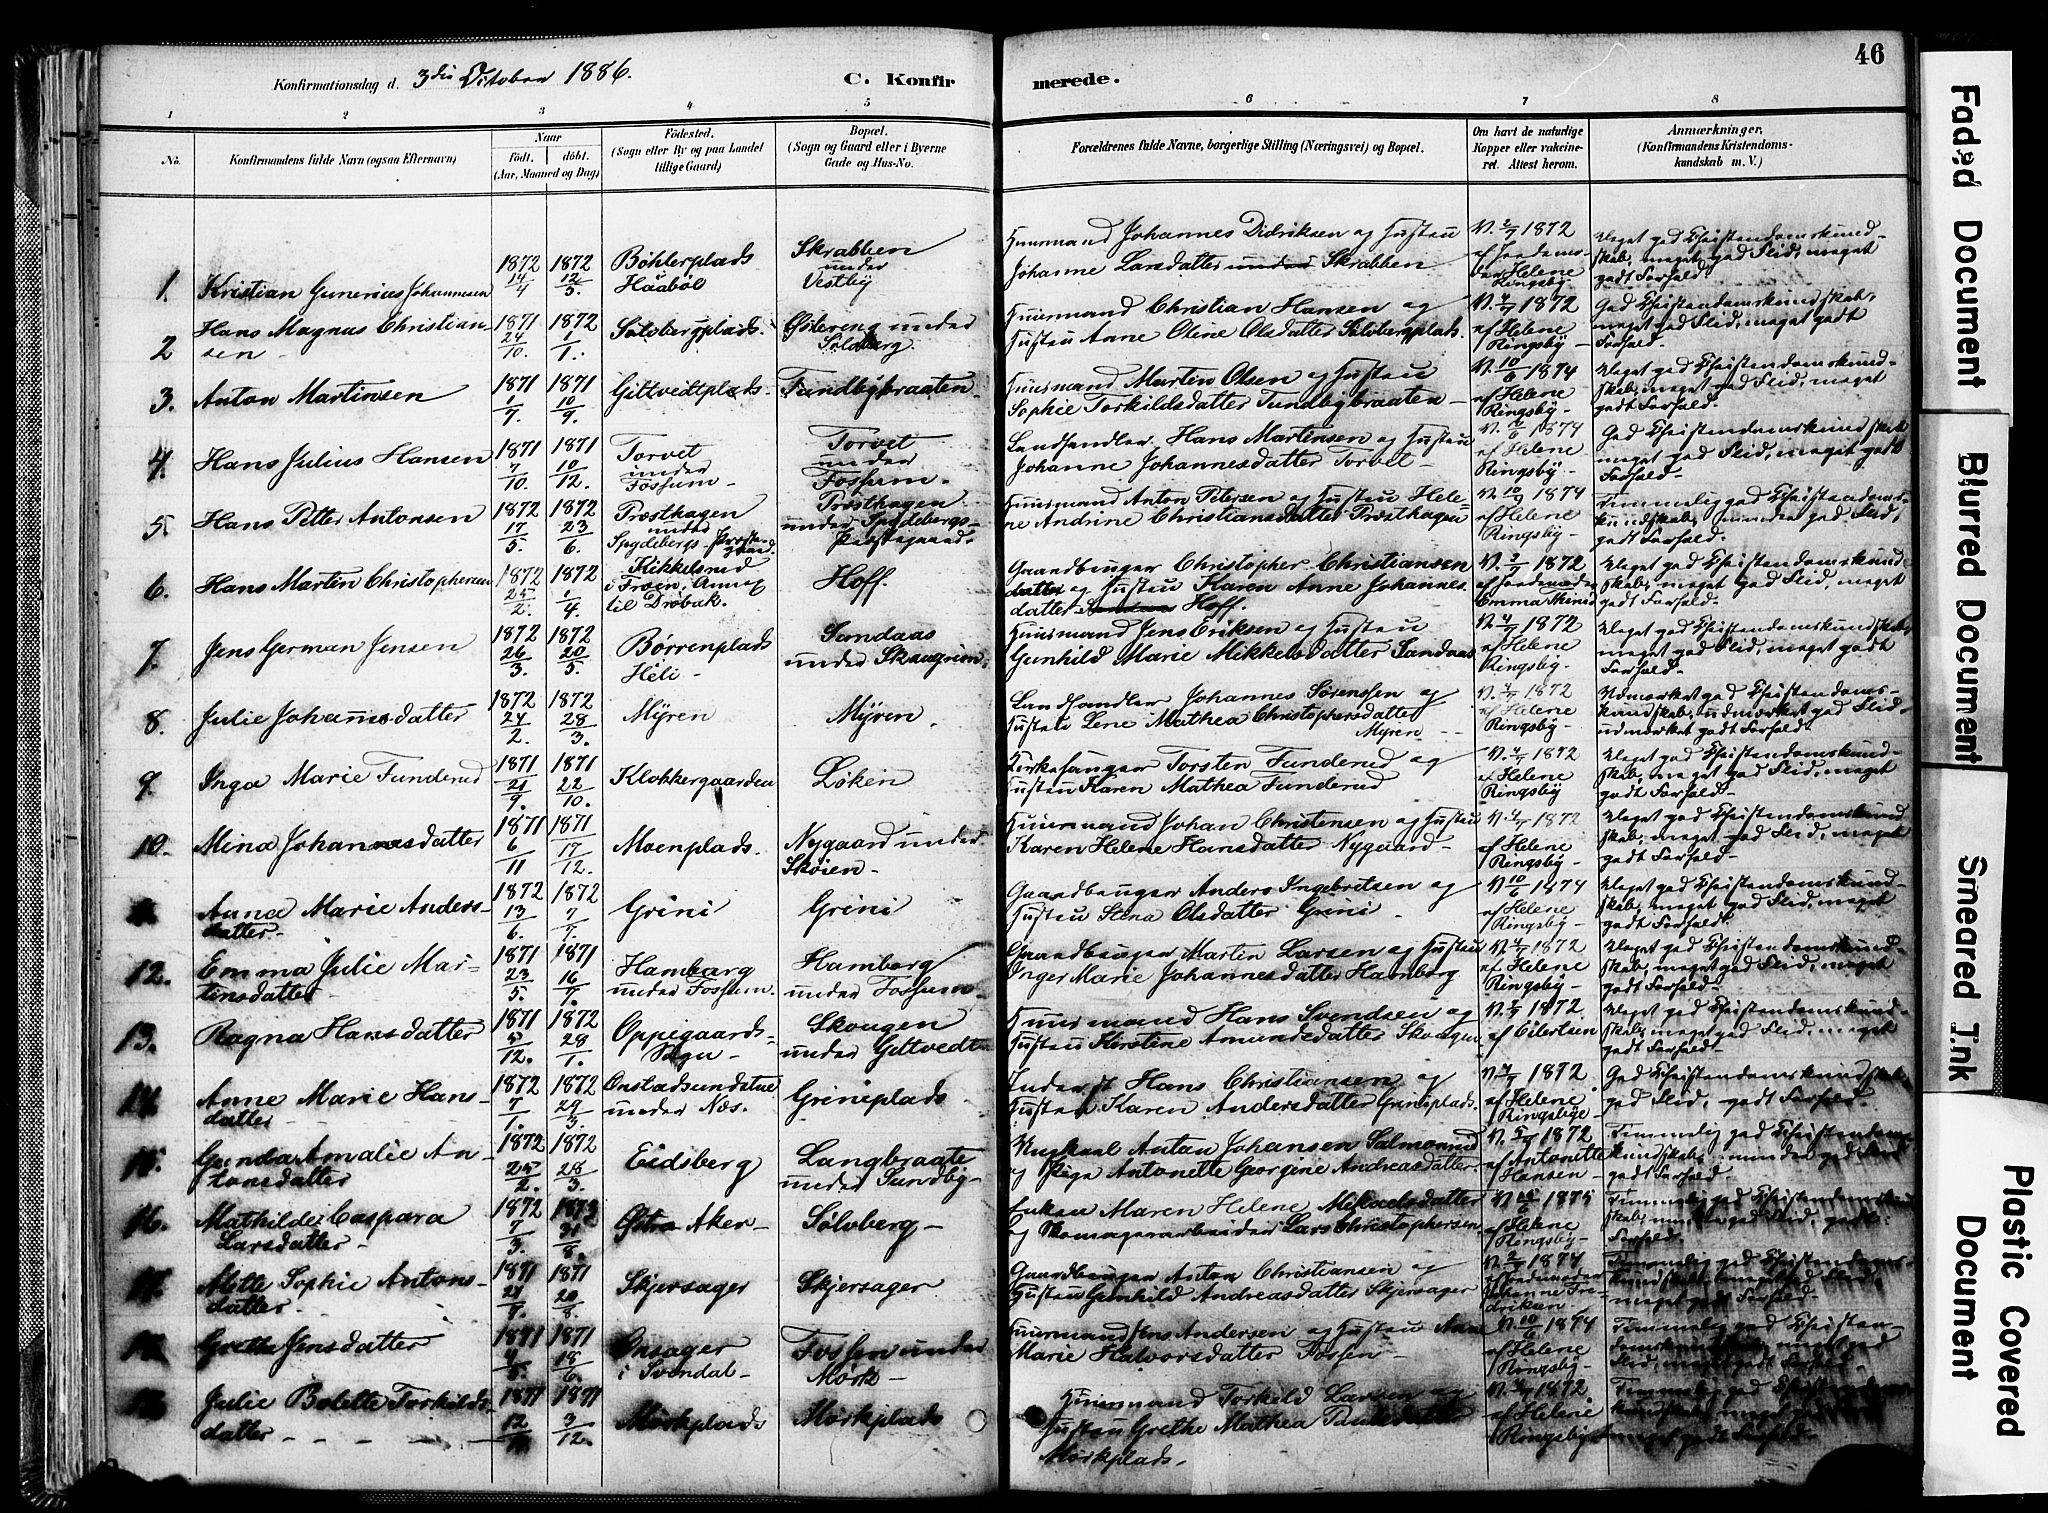 46
Konfirmationsdag d. 3die October 1886.
C. Konfirmerede.
1 2 3 4 5 6 7 8
No.
Konfirmandens fulde Navn (ogsaa Efternavn)
Naar
födt. döbt.
(Aar, Maaned og Dag)
Födested.
(Sogn eller By og paa Landet
tillige Gaard)
Bopæl.
(Sogn og Gaard eller i Byerne
Gade og Hus-No.
Forældrenes fulde Navne, borgerlige Stilling (Næringsvei) og Bopæl.
Om havt de naturlige
Kopper eller vakcine-
ret. Attest herom.
Anmærkninger.
(Konfirmandens Kristendoms-
kundskab m. V.)
1. Kristian Gunerius Johannesen 1872 14/4 1872 12/5 Böhlerplads Haabøl Skrabben under Vestby
Huusmand Johannes Didriksen og Hustru
Johanne Larsdatter under Skrabben
V. 2/7 1872 af Jordemoder Helene Ringsby
Meget god Christendomskundskab, meget god Flid, meget godt Forhold.
2 Hans Magnus Christiansen 1871 24/10. 1872 1/1. Solbergplads. Østereng under Solberg
Huusmand Christian Hansen og
Hustru Anne Oline Olsdatter Solbergplads.
1872 af Helene Ringsby
God Christendomskundskab, meget god Flid, meget godt Forhold.
3. Anton Martinsen 1871 1/7. 1871 10/9. Gittvedtplads Tundbybraaten
Huusmand Martin Olsen og Hustru
Sophie Torkildsdatter Tundbybraaten
V. 10/6 1874 af Helene Ringsby
Meget god Christendomskundskab, meget god Flid, meget godt Forhold.
4. Hans Julius Hansen 1871 7/10. 1871 10/12. Torvet under Fossum Torvet under Fossum
Landhandler Hans Martensen og Hustru
Johanne Johannesdatter Torvet
1874 af Helene Ringsby
God Christendomskundskab meget god Flid, meget godt Forhold.
5. Hans Petter Antonsen 1872 17/5. 1872 23/6. Præsthagen under Spydebergs Præstegaard Præsthagen under Spydebergs Præstegaard.
Huusmand Anton Petersen og Hustru Helene
Andrine Christiansdatter Præsthagen
V. 10/7 1874 af Helene Ringsby
Temmelig god Christendomskundskab, mindre god Flid, godt Forhold.
6. Hans Martin Christophersen 1872 25/2. 1872 1/4. Kikkelsrud i Froen, Annex til Drøbak. Hoff.
Gaardbruger Christopher Christiansen
og Hustru Karen Anne Johannesdatter Hoff.
1872 af Jordemoder Emma
Meget god Christendomskundskab, meget god Flid, meget godt Forhold.
7. Jens German Jensen 1872 26/3. 1872 20/5. Börrenplads Heli Sandaas under Skaugrim
Huusmand Jens Eriksen og Hustru
Gunhild Marie Mikkelsdatter Sandaas
1872 af Helene Ringsby
Meget god Christendomskundskab, meget god Flid, meget godt Forhold.
8. Julie Johannesdatter 1872 24/2. 1872 28/3. Myren Myren.
Landhandler Johannes Sørenssen og
Hustru Lene Mathea Christophersdatter Myren
1872 af Helene Ringsby
Udmærket god Christendomskundskab, udmærket god Flid, udmærket godt Forhold.
9. Inga Marie Funderud 1871 21/9. 1871 22/10. Klokkergaarden Løken
Kirkesanger Torsten Funderud og
Hustru Karen Mathea Funderud
1872 af Helene Ringsby
Meget god Christendomskundskab, meget god Flid, meget godt Forhold
10. Mina Johannesdatter 1871 6/11 1871 17/12. Moenplads. Nygaard under Skøien
Huusmand Johan Christensen og Hustru
Karen Helene Hansdatter Nygaard
1872 af Helene Ringsby
Meget god Christendomskundskab, meget god Flid, meget godt Forhold
Anna Marie Andersdatter 1872 13/6. 1872 7/7. Grini Grini
Gaardbruger Anders Ingebritsen og
Hustru Stena Olsdatter Grini
V. 10/6 1874 af Helene Ringsby
Meget god Christendomskundskab, meget god Flid, meget godt Forhold.
12. Emma Julie Martinsdatter 1871 23/5. 1871 16/7. Hamberg under Fossum. Hamberg under Fossum
Gaardbruger Martin Larsen og Hustru
Inger Marie Johannesdatter Hamberg
1872 af Helene Ringsby
Meget god Christendomskundskab, meget god Flid, meget godt Forhold
13. Ragna Hansdatter 1871 5/12. 1872 28/1. Oppegaards Sogn Skougen under Gittvedt
Huusmand Hans Svendsen og
Hustru Kirstine Amundsdatter Skougen
1872. af Eilertsen
Meget god Christendomskundskab, meget god Flid, meget godt Forhold
14. Anne Marie Hansdatter 1872 7/1. 1872 24/3. under Næs. Griniplads
Inderst Hans Christiansen og
Hustru Karen Andersdatter Griniplads.
1872 af Helene Ringsby
God Christendomskundskab, god Flid, godt Forhold.
15. Gunda Amalie Antonsdatter 1872 25/2. 1872 28/3. Eidsberg Langbraate under Sundby
Ungkarl Anton Johansen
og Pige Antonette Georgine Andreasdatter.
1872 af Antonette Hansen
Temmelig god Christendomskundskab, mindre god Flid godt Forhold
16. Mathilde Caspara Larsdatter 1872 7/3. 31/8. Østre Aker Solberg
Enken Maren Helene
og Skomagerarbeider Lars Christophersen
1875 af Helene Ringsby
Temmelig god Christendomskundskab, Flid, godt Forhold.
Mette Sophie Antonsdatter 1871 1871 20/8. Skjersager Skjersager
Gaardbruger Anton Christiansen og
Hustru Gunhild Andreasdatter Skjersager
1874 af Jordemoder Johanne Fredriksen
Temmelig god Christendomskundskab, meget god Flid, meget godt Forhold.
Grethe Jensdatter 1871 1871 18/6. Onsager i Svendal Fossen under Mørk
Huusmand Jens Andersen og Hustru Anne
Marie Halvorsdatter Fossen
V. 10/6 1874 af Helene Ringsby
Temmelig god Christendomskundskab, meget god Flid, meget godt Forhold.
Julie Bolette Torkildsdatter 1871 1871 3/12. Mørkplads Mørkplads
Huusmand Torkild Larsen og
Hustru Grethe Mathea
Mørkplads
1872 af Helene Ringsby
Temmelig god Christendomskundskab, meget god Flid, meget godt Forhold
Faded Document
Blurred Document
Smeared Ink
Plastic Covered
Document